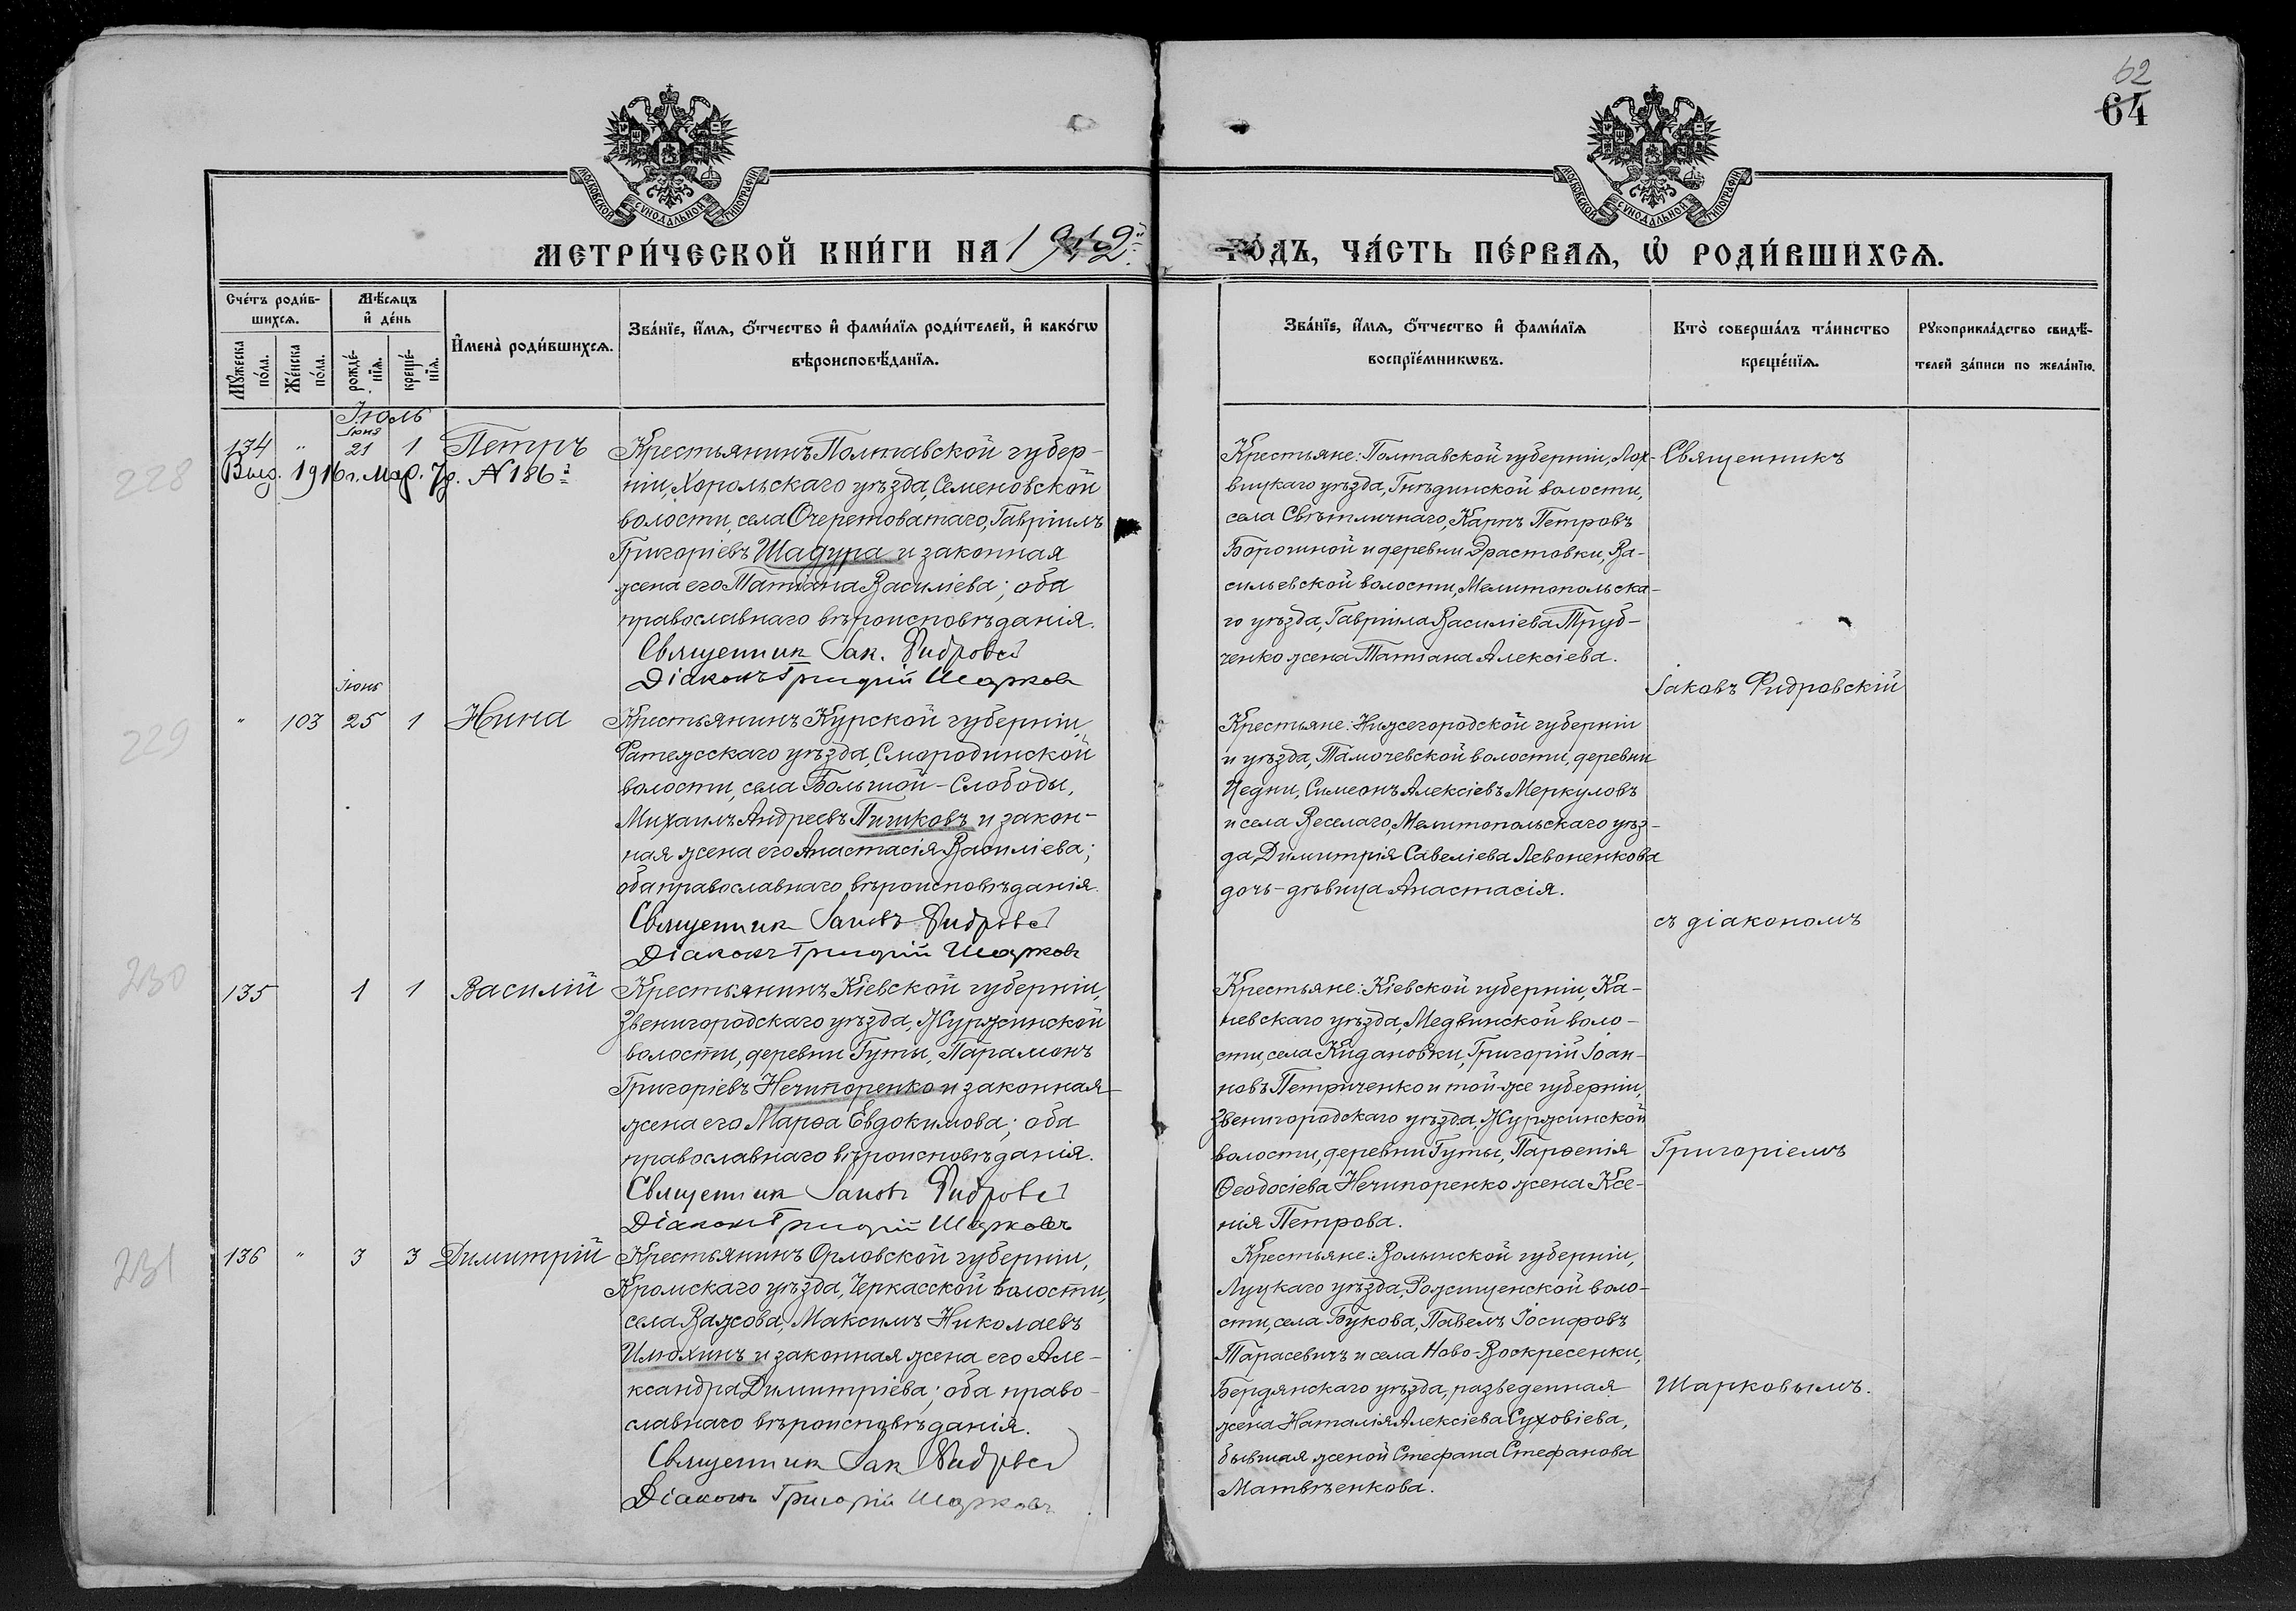 62
64
МОСКОВСКОЙ СУНОДАЛЬНОЙ ТИПОГРАФІИ
МОСКОВСКОЙ СУНОДАЛЬНОЙ ТИПОГРАФІИ
МЕТРИ́ЧЕСКОЙ КНИ́ГИ НА 1912й
ГО́ДЪ, ЧА́СТЬ ПЕ́РВАѦ, Ѡ҆ РОДИ́ВШИХСѦ.
Сче́тъ роди́в-
шихсѧ.
Мꙋжеска по́ла.
Же́нска по́ла.
Мѣ́сѧцъ
и҆ де́нь
рожде́-
нїѧ.
креще́-
нїѧ.
И҆мена̀ роди́вшихсѧ.
Зва́нїе, и҆́мѧ, ѻ҆́тчество и҆ фами́лїѧ роди́телей, и҆ како́гѡ
вѣроисповѣ́данїѧ.
Зва́нїе, и҆́мѧ, ѻ҆́тчество и҆ фами́лїѧ
воспрїе́мникѡвъ.
Кто̀ соверша́лъ та́инство
креще́нїѧ.
Рꙋкоприкла́дство свидѣ́-
телей за́писи по жела́нїю.
Іюль
228
134 " Іюня 21 1 Петръ
Выд. 1916 г. Мар. 7 д. № 186й
Крестьянинъ Полтавской губер-
ніи, Хорольскаго уѣзда, Семеновской
волости, села Очеретоватаго, Гавріилъ
Григоріевъ Шадура и законная
жена его Татіана Василіева; оба
православнаго вѣроисповѣданія.
Священник Іак. Фидровс
Діаконъ Григорій Шарковъ
Крестьяне: Полтавской губерніи, Лох-
вицкаго уѣзда, Гнѣдинской волости,
села Свѣтличнаго, Карпъ Петровъ
Борошной и деревни Эрастовки, Ва-
сильевской волости, Мелитопольска-
го уѣзда, Гавріила Василіева Труб-
ченко жена Татіана Алексіева.
Священникъ
Іаковъ Фидровскій
229
" 103 Іюнь 25 1 Нина
Крестьянинъ Курской губерніи,
Фатежскаго уѣзда, Смородинской
волости, села Большой-Слободы,
Михаилъ Андреевъ Пишковъ и закон-
ная жена его Анастасія Василіева;
оба православнаго вѣроисповѣданія.
Священник Іаковъ Фидровс
Діаконъ Григорій Шарковъ
Крестьяне: Нижегородской губерніи
и уѣзда, Тамочевской волости, деревни
Чедни, Симеонъ Алексіевъ Меркуловъ
и села Веселаго, Мелитопольскаго уѣз-
да, Димитрія Савеліева Левоненкова
дочь-дѣвица Анастасія.
съ діакономъ
230
135 1 1 Василій
Крестьянинъ Кіевской губерніи,
Звенигородскаго уѣзда, Журжинской
волости, деревни Гуты, Парамонъ
Григоріевъ Нечипоренко и законная
жена его Марѳа Евдокимова; оба
православнаго вѣроисповѣданія.
Священник Іаковъ Фидровс
Діаконъ Григорій Шарковъ
Крестьяне: Кіевской губерніи, Ка-
невскаго уѣзда, Медвинской воло-
сти, села Кидановки, Григорій Іоан-
новъ Петриченко и той-же губерніи,
Звенигородскаго уѣзда, Журжинской
волости, деревни Гуты, Парѳенія
Ѳеодосіева Нечипоренко жена Ксе-
нія Петрова.
Григоріемъ
231
136 " 3 3 Димитрій
Крестьянинъ Орловской губерніи,
Кромскаго уѣзда, Черкасской волости,
села Важова, Максимъ Николаевъ
Илюхинъ и законная жена его Але-
ксандра Димитріева; оба право-
славнаго вѣроисповѣданія.
Священник Іак Фидровс
Діаконъ Григорій Шарковъ
Крестьяне: Волынской губерніи,
Луцкаго уѣзда, Рожищенской воло-
сти, села Букова, Павелъ Іосифовъ
Тарасевичъ и села Ново-Воскресенки,
Бердянскаго уѣзда, разведенная
жена Наталія Алексіева Суховіева,
бывшая женой Стефана Стефанова
Матвѣенкова.
Шарковымъ.